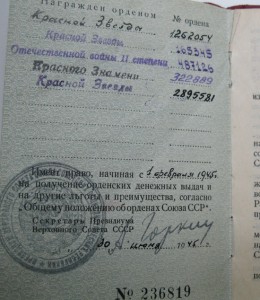 Награжден орденом
№ ордена
Красной Звезды 1262054
Красной Звезды
Отечественной войны II степени 487126
Красного Знамени 322889
Красной Звезды 2895581
Имеет право, начиная с февраля 1945 г.
на получение орденских денежных выдач и
на другие льготы и преимущества, согласно
«Общему положению об орденах Союза ССР».
Секретарь Президиума
Верховного Совета СССР
Горкин
30 июня 1945 г.
№ 236819